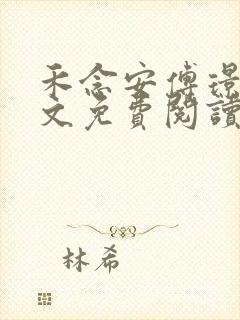 禾念安傅璟
文免費閱讀
林希